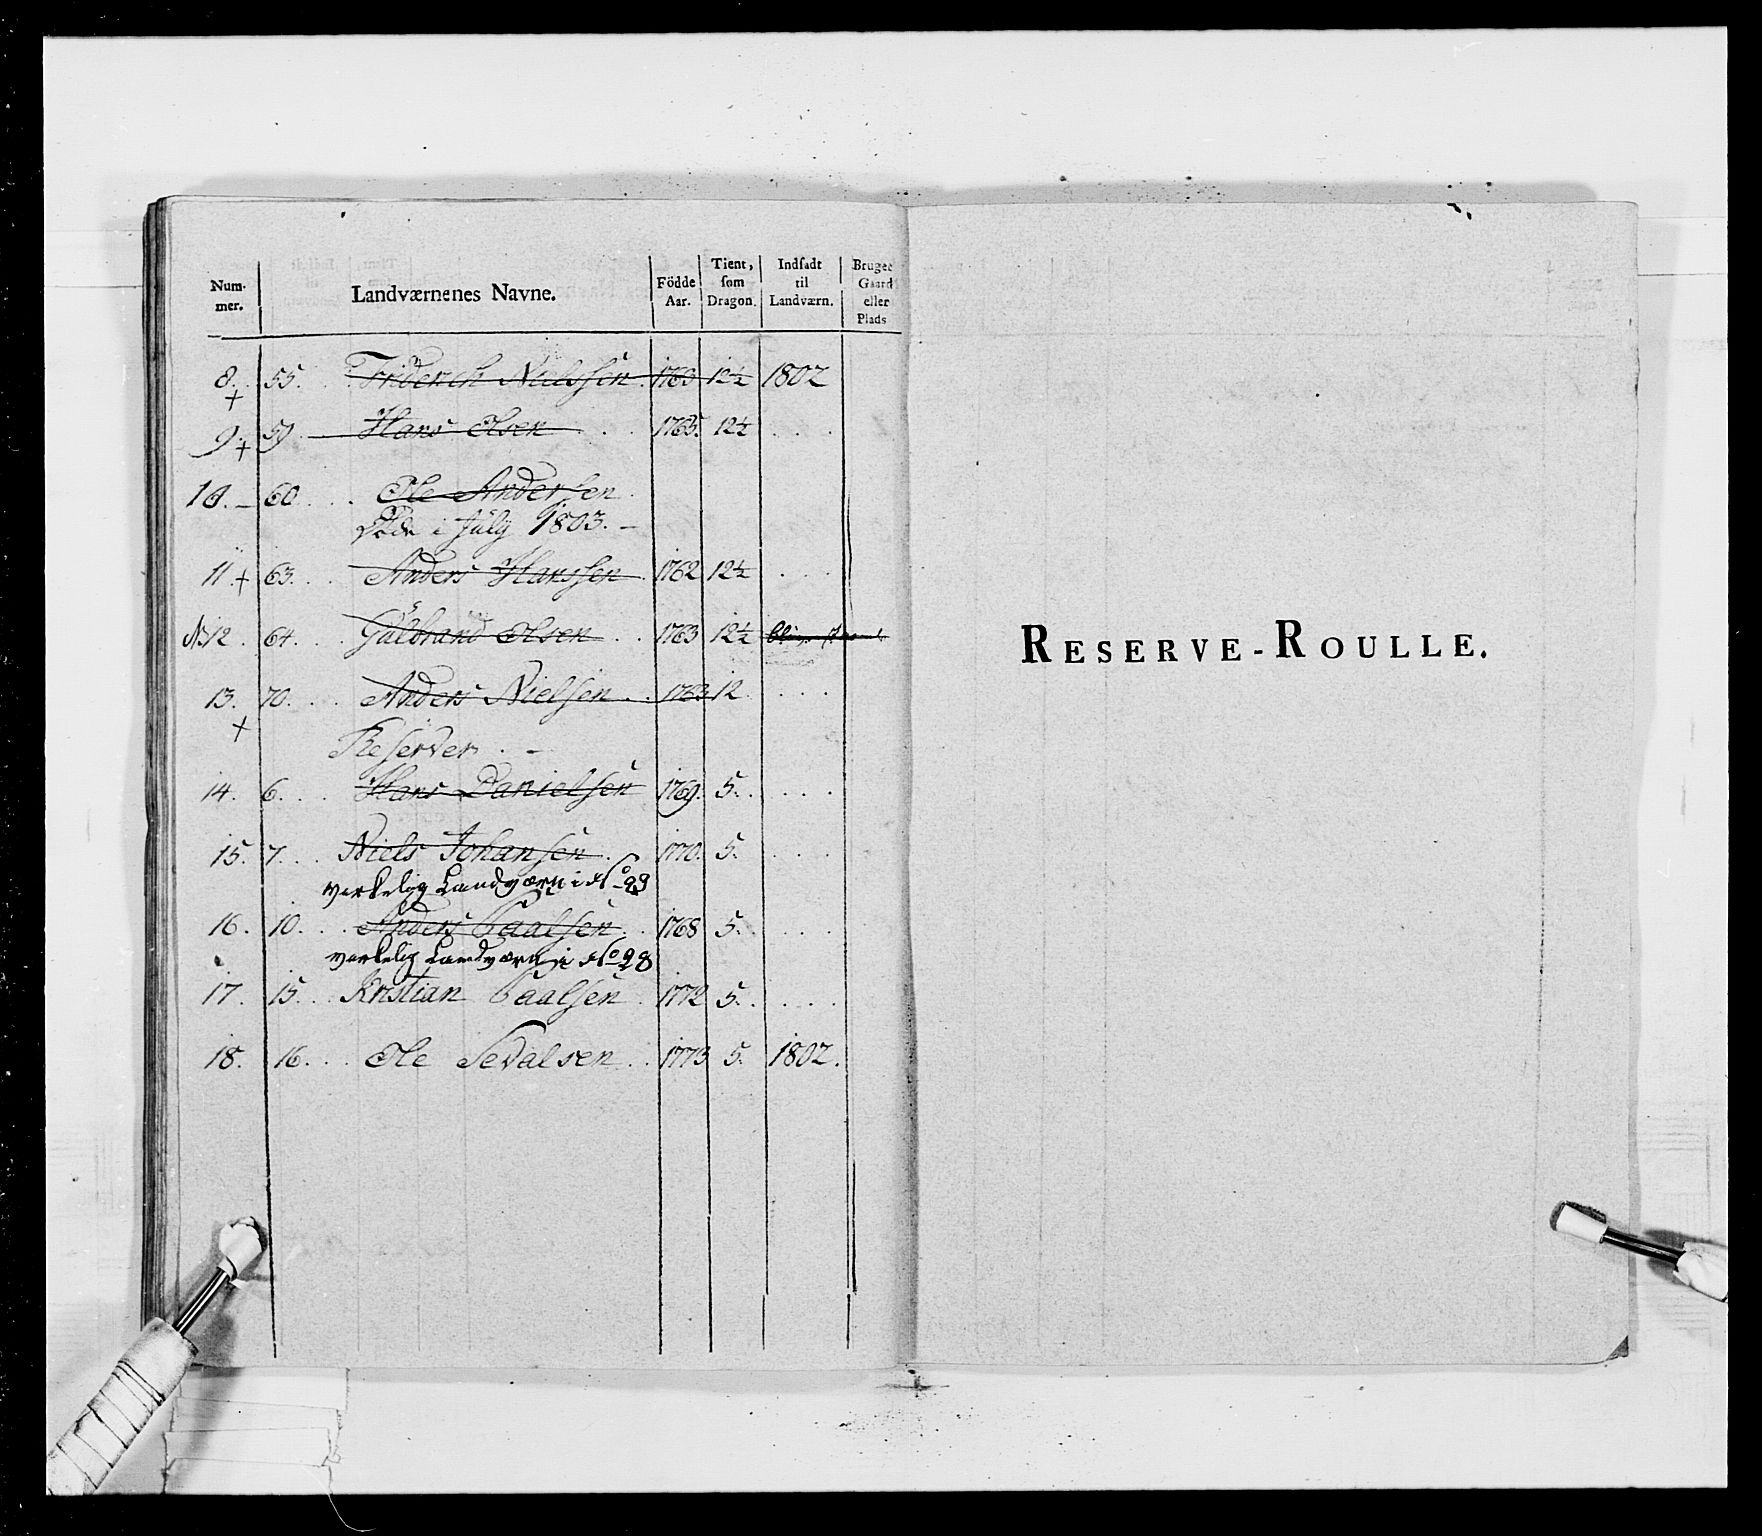 Num- mer. Landværnenes Navne. Födde Aar. Tient, som Dragon. Indsadt til Landværn. Bruger Gaard eller Plads
8. + 55. Friderich Nielssen. 1763 12½ 1802
9. + 59 Hans Olsen 1765. 12½ . . .
10. – 60. Ole Andersen.
Döde i Júlÿ 1803. –
11 + 63. Anders Hanssen. 1762 12½ . . .
N 12. 64. Gúlbrand Olsen 1763 12½
13. + 70. Anders Nielsen. 1763 12 . . .
Reserver. –
14. 6. Hans Danielsen 1769. 5. . . .
15. 7. Niels Johansen. 1770. 5. . . .
verkelig Landværn i No 29
16. 10. Anders Paalsen. 1768 5. . . .
verkelig Landværn i No 28
17. 15. Kristian Paalsen. 1772 5. . . .
18. 16. Ole Sevalsen. 1773 5. 1802.
RESERVE-ROULLE.